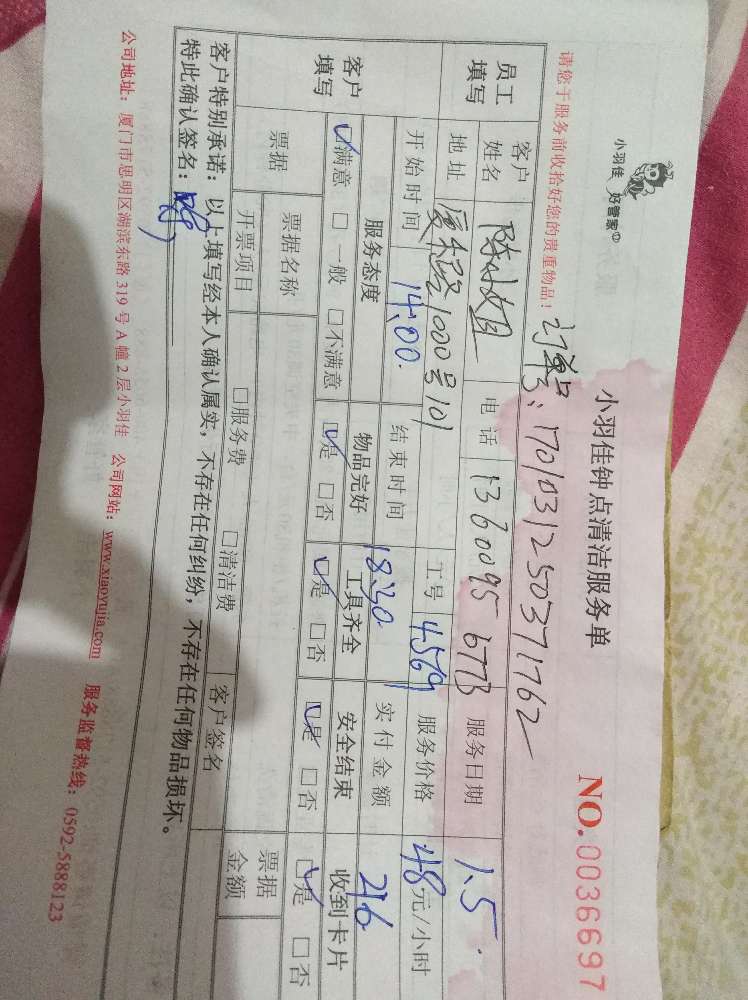 小羽佳 好管家
小羽佳钟点清洁服务单
NO.0036697
请您于服务前收拾好您的贵重物品！
订单号：1701031250371762
员工填写
客户姓名 陈小姐 电话 13600956773 服务日期 1.5.
地址 厦禾路1000号101 工号 4569 服务价格 48元/小时
客户填写
开始时间 14:00. 结束时间 18:30 实付金额 216
服务态度 物品完好 工具齐全 安全结束 收到卡片
☑满意 □一般 □不满意 ☑是 □否 ☑是 □否 ☑是 □否 ☑是 □否
票据 票据名称 票据金额
开票项目 □服务费 □清洁费 客户签名
客户特别承诺：以上填写经本人确认属实，不存在任何纠纷，不存在任何物品损坏。
特此确认签名：
公司地址：厦门市思明区湖滨东路319号A幢2层小羽佳 公司网站：www.xiaoyujia.com 服务监督热线：0592-5888123